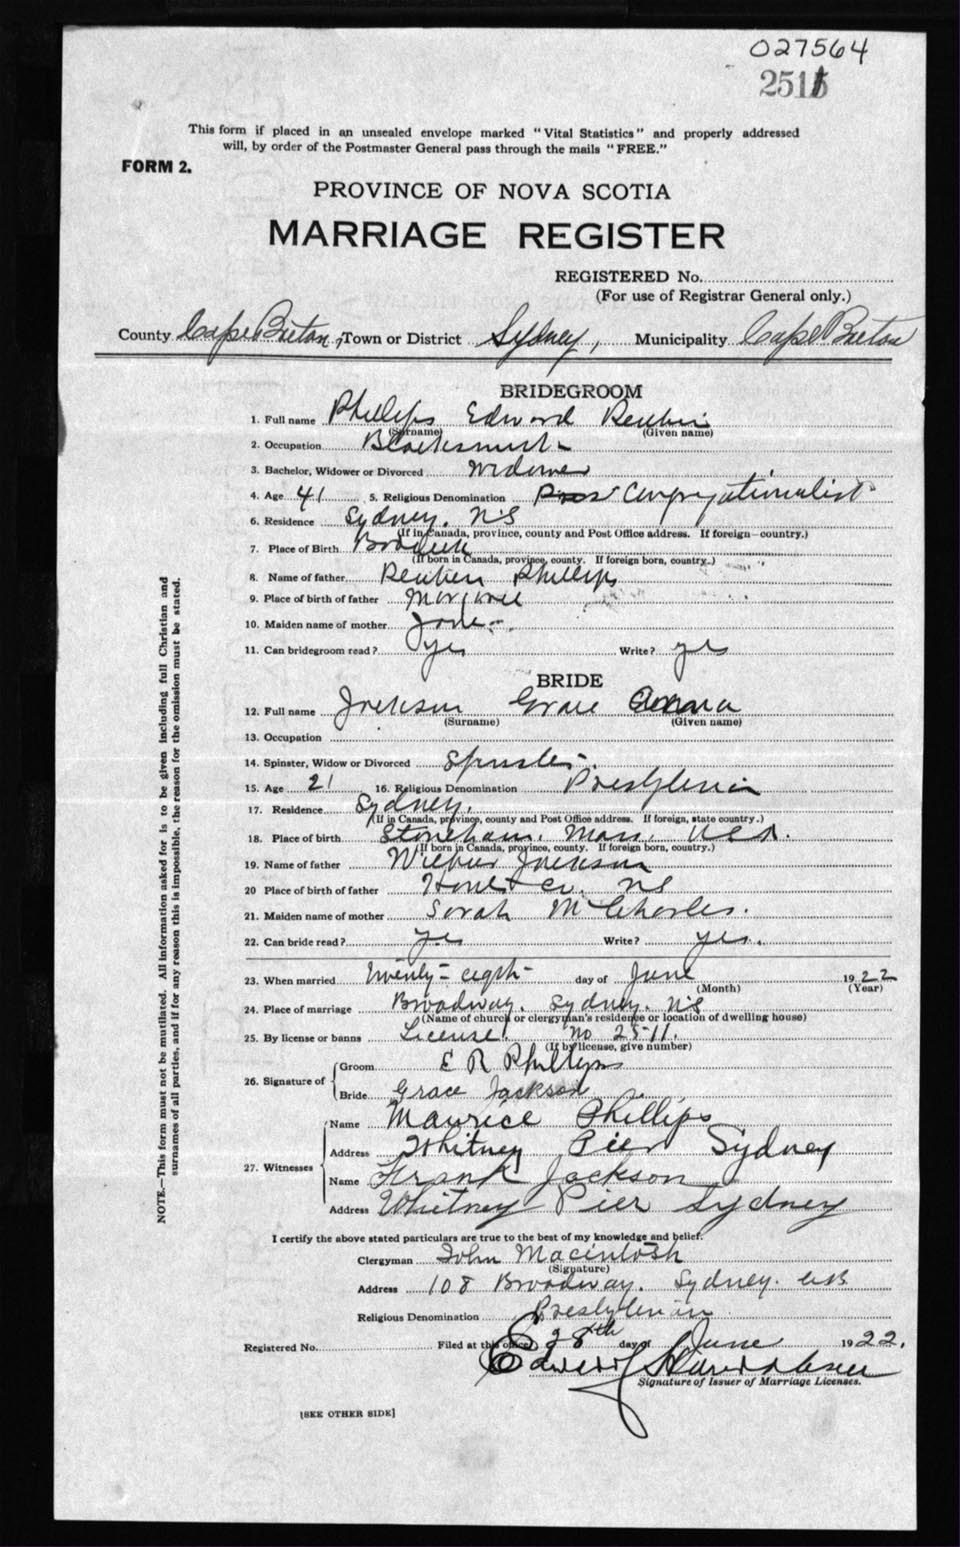 027564
2511
This form if placed in an unsealed envelope marked "Vital Statistics" and properly addressed
will, by order of the Postmaster General pass through the mails "FREE."
FORM 2.
PROVINCE OF NOVA SCOTIA
MARRIAGE REGISTER
REGISTERED No.
(For use of Registrar General only.)
County Cape Breton, Town or District Sydney, Municipality Cape Breton
BRIDEGROOM
1. Full name Phillips Edward Reuben
(Surname) (Given name)
2. Occupation Blacksmith
3. Bachelor, Widower or Divorced Widower
4. Age 41 5. Religious Denomination Congregationalist
6. Residence Sydney. NS
(If in Canada, province, county and Post Office address. If foreign—country.)
7. Place of Birth
(If born in Canada, province, county. If foreign born, country.)
8. Name of father Reuben Phillips
9. Place of birth of father Margaree
10. Maiden name of mother Jane -
11. Can bridegroom read? yes Write? yes
BRIDE
12. Full name Jackson Grace
(Surname) (Given name)
13. Occupation
14. Spinster, Widow or Divorced Spinster.
15. Age 21 16. Religious Denomination Presbyterian
17. Residence Sydney.
(If in Canada, province, county and Post Office address. If foreign, state country.)
18. Place of birth Stoneham. Mass. USA.
(If born in Canada, province, county. If foreign born, country.)
19. Name of father Wilbur Jackson
20 Place of birth of father Hants Co. NS
21. Maiden name of mother Sarah McCharles.
22. Can bride read? yes Write? yes.
23. When married Twenty-eight day of June 1922
(Month) (Year)
24. Place of marriage Broadway. Sydney. NS
(Name of church or clergyman's residence or location of dwelling house)
25. By license or banns License. No 2511.
(If by license, give number)
26. Signature of Groom E R Phillips
Bride Grace Jackson
27. Witnesses Name Maurice Phillips
Address Whitney Pier Sydney
Name Frank Jackson
Address Whitney Pier Sydney
I certify the above stated particulars are true to the best of my knowledge and belief.
Clergyman John Macintosh
(Signature)
Address 108 Broadway. Sydney. C.B.
Religious Denomination Presbyterian
Registered No. Filed at this office 28th day of June 1922.
Signature of Issuer of Marriage Licenses.
[SEE OTHER SIDE]
NOTE.—This form must not be mutilated. All information asked for is to be given including full Christian and
surnames of all parties, and if for any reason this is impossible, the reason for the omission must be stated.